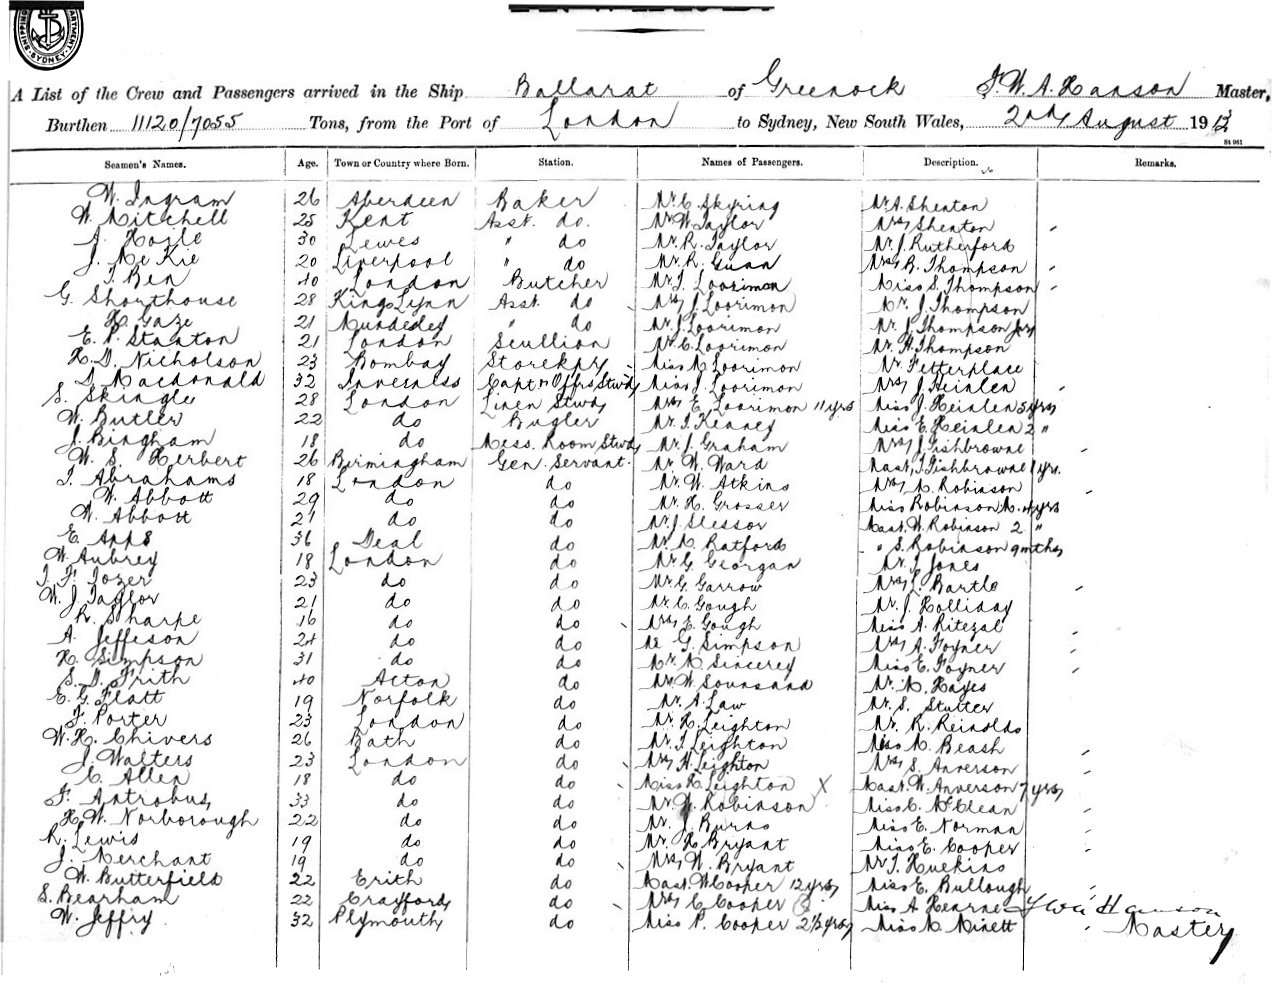 SHIPPING DEPARTMENT SYDNEY
A List of the Crew and Passengers arrived in the Ship Ballarat of Greenock F. W. A. Hanson Master,
Burthen 11120/7055 Tons, from the Port of London to Sydney, New South Wales, 2nd August 191
St 951
Seamen's Names. Age. Town or Country where Born. Station. Names of Passengers. Description. Remarks.
W. Ingram 26 Aberdeen Baker Mr. C. Skyring Mr A. Shenton
W. Mitchell 25 Kent Asst. do. Mr W. Taylor Mrs Shenton
A. Hoyle 30 Lewes " do Mr. R. Taylor Mr. J. Rutherford
J. McKie 20 Liverpool " do Mr. R. Gunn Mrs B. Thompson
T. Ben 40 London Butcher Mr. T. Loorimon Miss S. Thompson
G. Shorthouse 28 Kings Lynn Asst. do Mrs J. Loorimon Mr. J. Thompson
H. Gaze 21 " do Mr. J. Loorimon Mr. J. Thompson Jnr
E. P. Stanton 21 London Scullion Mr. C. Loorimon Mr. H. Thompson
H. D. Nicholson 23 Bombay Storekpr Miss M. Loorimon Mr Fetterplace
D. Macdonald 32 Inverness Capt & Offrs Stwd Miss J. Loorimon Mrs J. Heinlen
S. Skingle 28 London Linen Stwd Mrs E. Loorimon 11 yrs Miss J. Heinlen 5 yrs
W. Butler 22 do Bugler Mr. T. Keaney Miss E. Heinlen 2 "
J. Bingham 18 do Mess. Room Stwd Mr. J. Graham Mrs J. Fishbrowne
W. S. Herbert 26 Birmingham Gen. Servant. Mr. W. Ward Mast. T. Fishbrowne 1 yrs.
T. Abrahams 18 London do Mr. W. Atkins Mrs M. Robinson
W. Abbott 29 do do Mr. H. Grosser Miss Robinson M. 4 yrs
W. Abbott 21 do do Mr. J. Slessor Mast. W. Robinson 2 "
E. Apps 36 Deal do Mr. M. Ratford " S. Robinson 9 mths
W. Aubrey 18 London do Mr. G. Georgan Mr. J. Jones
T. F. Tozer 23 do do Mr. G. Garrow Mrs L. Bartle
W. J. Taylor 21 do do Mr. C. Gough Mr. J. Holliday
R. Sharpe 16 do do Mrs E. Gough Miss A. Ritezel
A. Jeffeson 24 do do G. Simpson Mrs A. Foyner
H. Simpson 31 do do Mr. M. Sincerey Miss E. Foyner
S. D. Frith 40 Acton do Mr. W. Sounsand Mr. M. Hayes
E. G. Flatt 19 Norfolk do Mr. A. Law Mr. S. Stutter
F. Porter 23 London do Mr. H. Leighton Mr. R. Reinolds
W. H. Chivers 26 Bath do Mr. T. Leighton Miss M. Beash
J. Walters 23 London do Mrs H. Leighton Mrs S. Anverson
C. Allen 18 do do Miss H. Leighton X Mast. W. Anverson 7 yrs
F. Antrobus 33 do do Mr. W. Robinson Miss C. McClean
H. W. Norborough 22 do do Mr. J. Burns Miss E. Norman
R. Lewis 19 do do Mr. H. Bryant Miss E. Cooper
J. Merchant 19 do do Mrs W. Bryant Mr T. Huckins
W. Butterfield 22 Erith do Mast. W. Cooper 12 yrs Miss E. Bullough
S. Bearham 22 Crayford do Mrs C. Cooper Miss A. Hearne F W A Hanson
W. Jeffry 32 Plymouth do Miss P. Cooper 2½ yrs Miss M. Minett Master